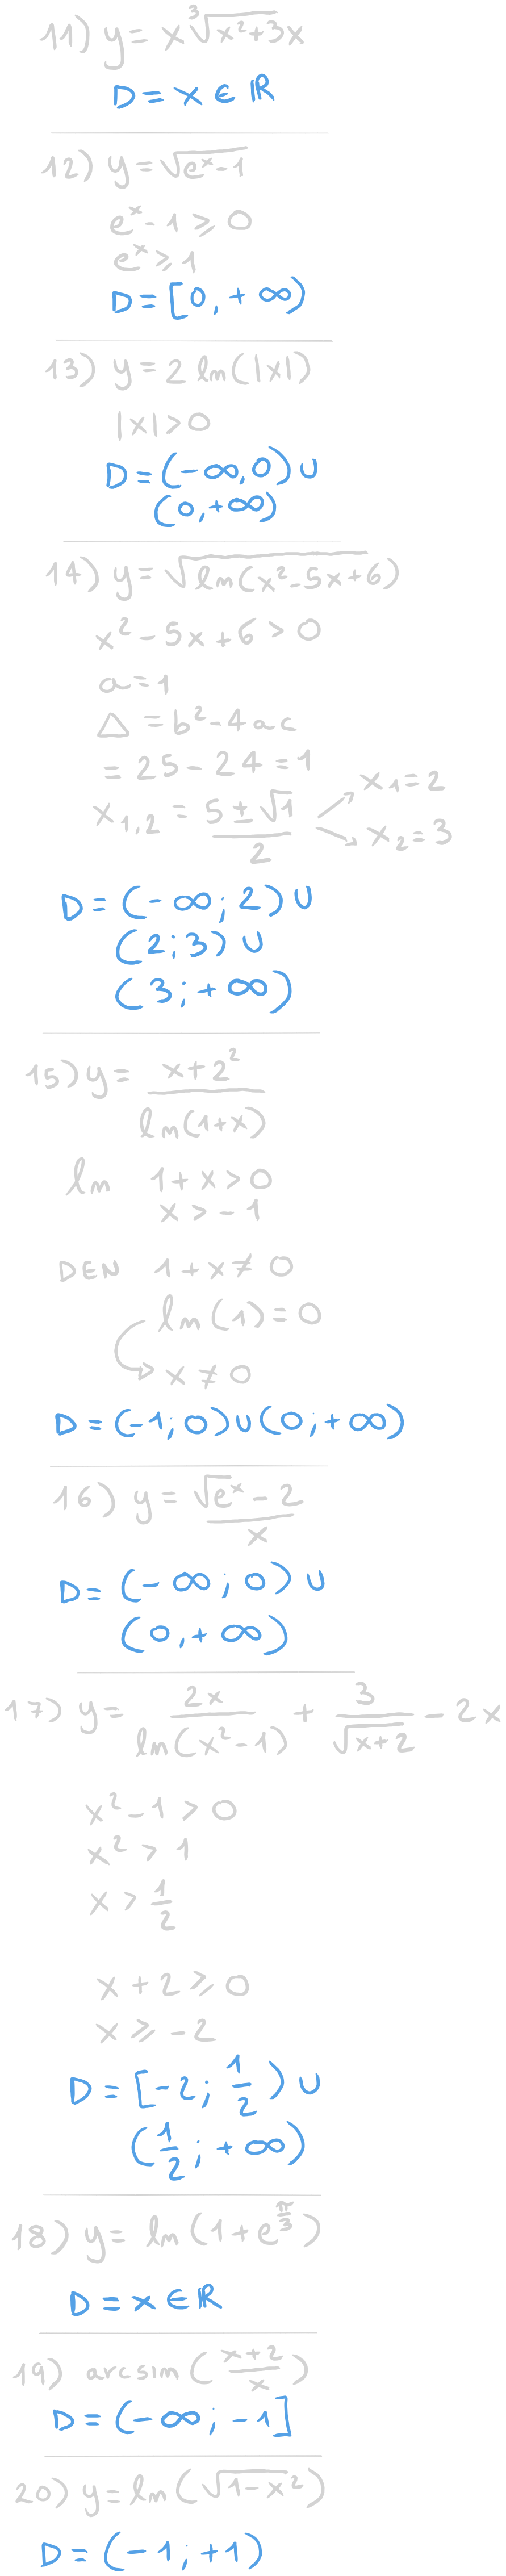 11) y = x ∛(x²+3x
D = x ∈ ℝ
12) y = √(eˣ-1)
eˣ - 1 ⩾ 0
eˣ ⩾ 1
D = [0, + ∞)
13) y = 2 ln(|x|)
|x| > 0
D = (-∞, 0) ∪
(0, +∞)
14) y = √(ln(x²-5x+6))
x² - 5x + 6 > 0
a = 1
Δ = b² - 4ac
= 25 - 24 = 1
x₁,₂ = (5 ± √1)/2 → x₁ = 2
→ x₂ = 3
D = (-∞; 2) ∪
(2; 3) ∪
(3; +∞)
15) y = (x+2²)/(ln(1+x))
ln 1 + x > 0
x > -1
DEN 1 + x ≠ 0
ln(1) = 0
→ x ≠ 0
D = (-1; 0) ∪ (0; +∞)
16) y = (√eˣ - 2)/x
D = (-∞; 0) ∪
(0, +∞)
17) y = 2x/(ln(x²-1)) + 3/√(x+2) - 2x
x² - 1 > 0
x² > 1
x > 1/2
x + 2 ⩾ 0
x ⩾ -2
D = [-2; 1/2) ∪
(1/2; +∞)
18) y = ln(1+e^(π/3))
D = x ∈ ℝ
19) arcsin((x+2)/x)
D = (-∞; -1]
20) y = ln(√(1-x²))
D = (-1; +1)